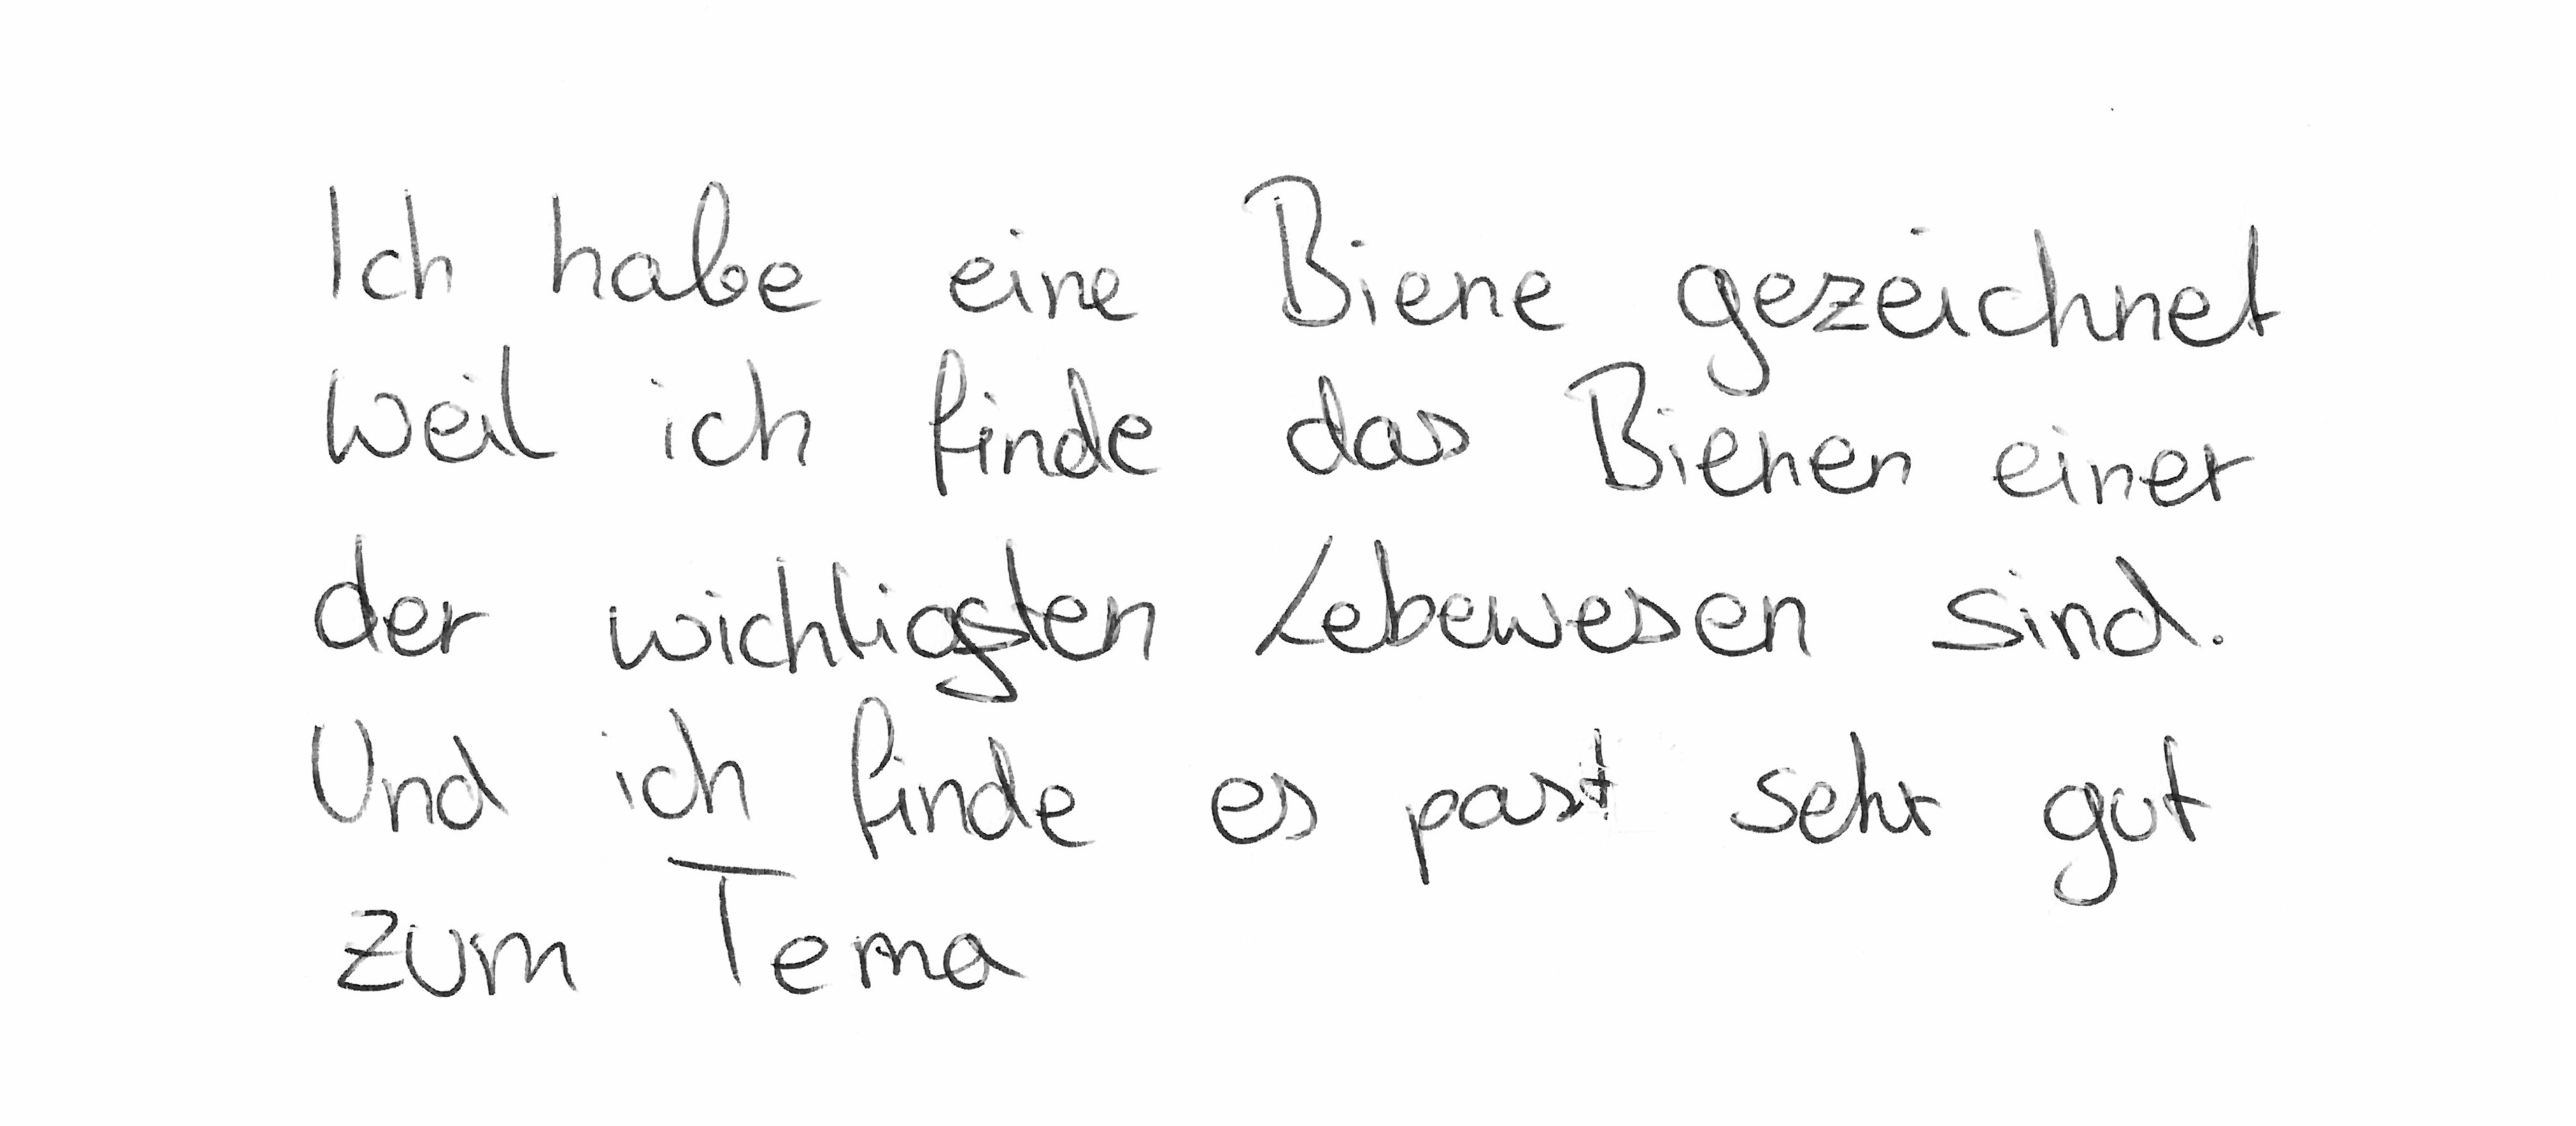 Ich habe eine Biene gezeichnet
weil ich finde das Bienen einer
der wichtigsten Lebewesen sind.
Und ich finde es past sehr gut
zum Tema